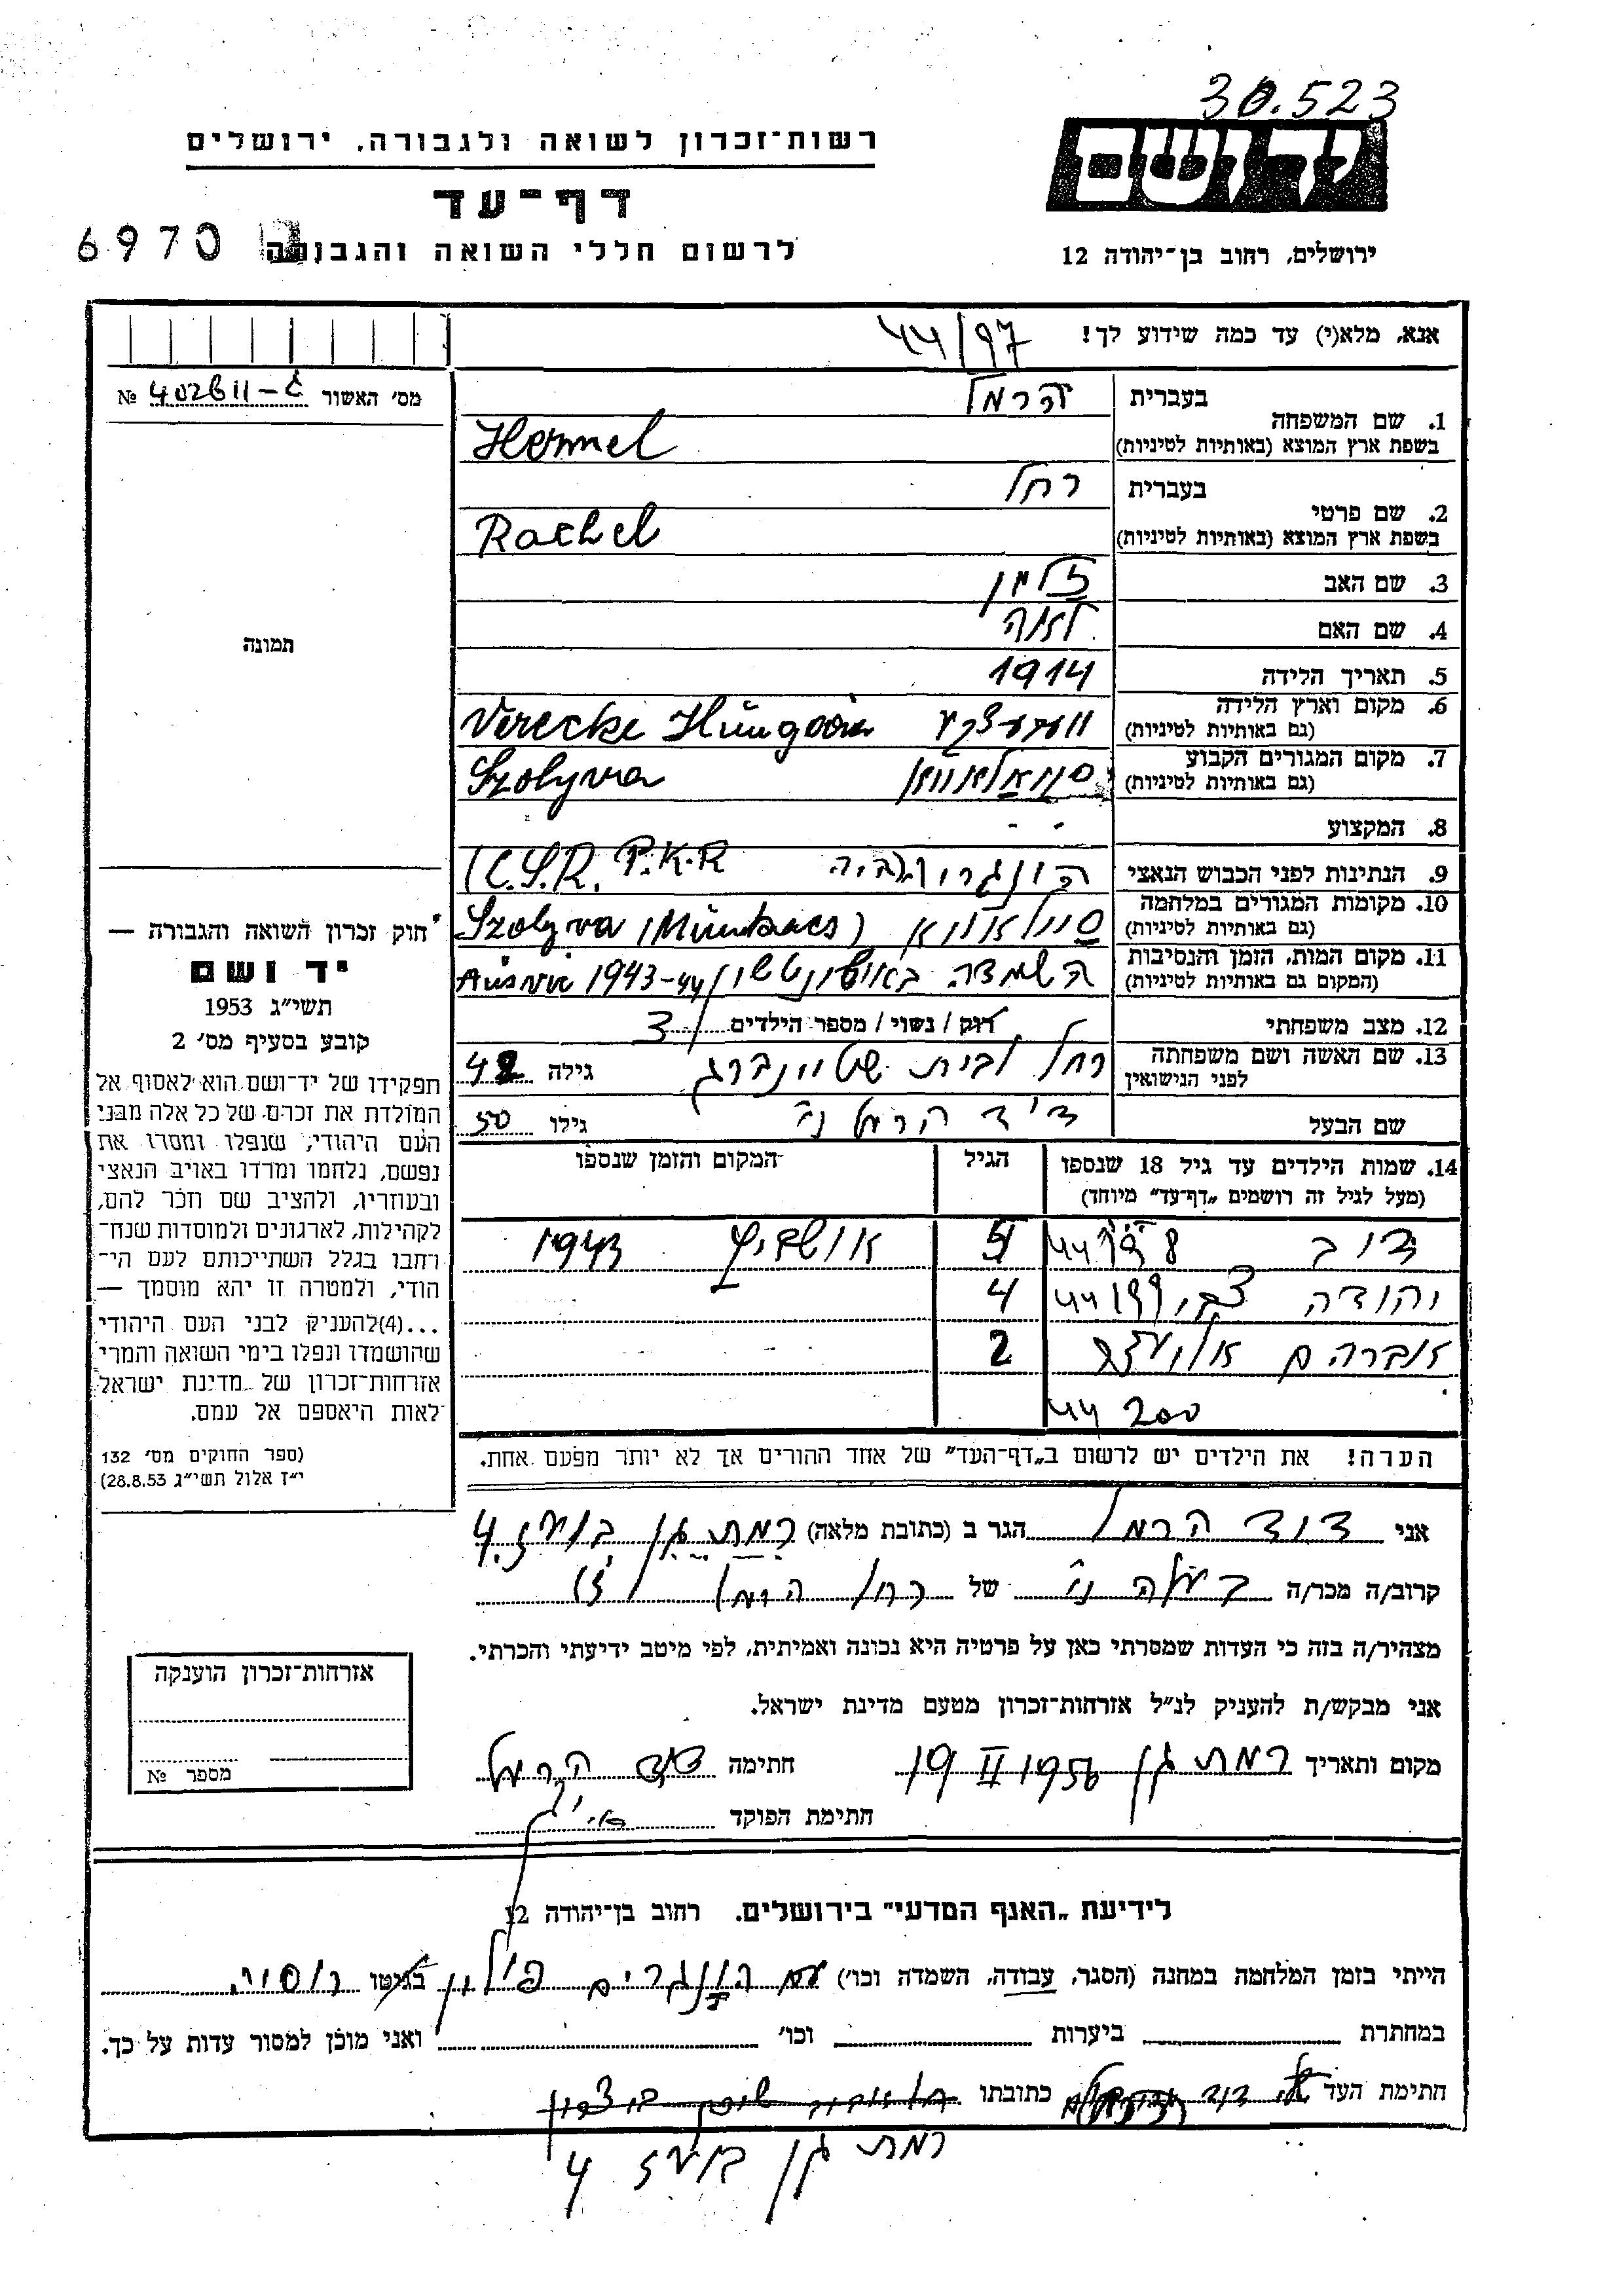 30.523
יד ושם
רשות־זכרון לשואה ולגבורה, ירושלים
דף־עד
לרשום חללי השואה והגבורה
6970
ירושלים, רחוב בן־יהודה 12
אנא, מלא(י) עד כמה שידוע לך!
44/97
מס' האשור № 402611-ג
1. שם המשפחה
בעברית הרמל
בשפת ארץ המוצא (באותיות לטיניות) Hermel
2. שם פרטי
בעברית רחל
בשפת ארץ המוצא (באותיות לטיניות) Rachel
3. שם האב זלמן
4. שם האם לאה
5. תאריך הלידה 1914
6. מקום וארץ הלידה
(גם באותיות לטיניות) Verecke
7. מקום המגורים הקבוע
(גם באותיות לטיניות) Szolyva
8. המקצוע - -
9. הנתינות לפני הכבוש הנאצי C.S.R. P.K.R
10. מקומות המגורים במלחמה
(גם באותיות לטיניות) Szolyva (Munkacs)
11. מקום המות, הזמן והנסיבות
(המקום גם באותיות לטיניות) השמדה 1943-44
12. מצב משפחתי רווק / נשוי / מספר הילדים 3
13. שם האשה ושם משפחתה
לפני הנישואין רחל לבית שטיינברג גילה 42
שם הבעל דוד הרמל ני' גילו 50
14. שמות הילדים עד גיל 18 שנספו
(מעל לגיל זה רושמים „דף־עד" מיוחד)
הגיל
המקום והזמן שנספו
דוב 44198 5 אושביץ 1943
יהודה צבי 44199 4
אברהם אליעזר 2
44200
הערה! את הילדים יש לרשום ב„דף־העד" של אחד ההורים אך לא יותר מפעם אחת.
תמונה
חוק זכרון השואה והגבורה —
יד ושם
תשי״ג 1953
קובע בסעיף מס' 2
תפקידו של יד־ושם הוא לאסוף אל
המולדת את זכרם של כל אלה מבני
העם היהודי, שנפלו ומסרו את
נפשם, נלחמו ומרדו באויב הנאצי
ובעוזריו, ולהציב שם וזכר להם,
לקהילות, לארגונים ולמוסדות שנח־
רחבו בגלל השתייכותם לעם הי־
הודי, ולמטרה זו יהא מוסמך —
...(4)להעניק לבני העם היהודי
שהושמדו ונפלו בימי השואה והמרי
אזרחות־זכרון של מדינת ישראל
לאות היאספם אל עמם.
(ספר החוקים מס' 132
י״ז אלול תשי״ג 28.8.53)
אני דוד הרמל הגר ב (כתובת מלאה) רמת גן בועז 4
קרוב/ה מכר/ה בעלה ני' של רחל הרמל ז"ל
מצהיר/ה בזה כי העדות שמסרתי כאן על פרטיה היא נכונה ואמיתית, לפי מיטב ידיעתי והכרתי.
אני מבקש/ת להעניק לנ״ל אזרחות־זכרון מטעם מדינת ישראל.
מקום ותאריך רמת גן 19 II 1956 חתימה דוד הרמל
חתימת הפוקד
אזרחות־זכרון הוענקה
מספר №
לידיעת „האגף המדעי" בירושלים. רחוב בן־יהודה 12
הייתי בזמן המלחמה במחנה (הסגר, עבודה, השמדה וכו') עם הונגרים פולין בגיטו רוסיה
במחתרת ביערות וכו' ואני מוכן למסור עדות על כך.
חתימת העד דוד כתובתו
רמת גן בועז 4